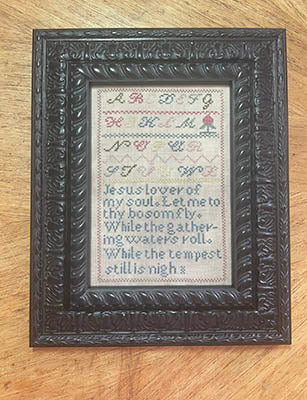 A B C D E F G
H I K L M
N O P Q R
S T V W X
Jesus lover of
my soul. Let me to
thy bosom fly.
While the gather-
ing waters roll.
While the tempest
still is nigh